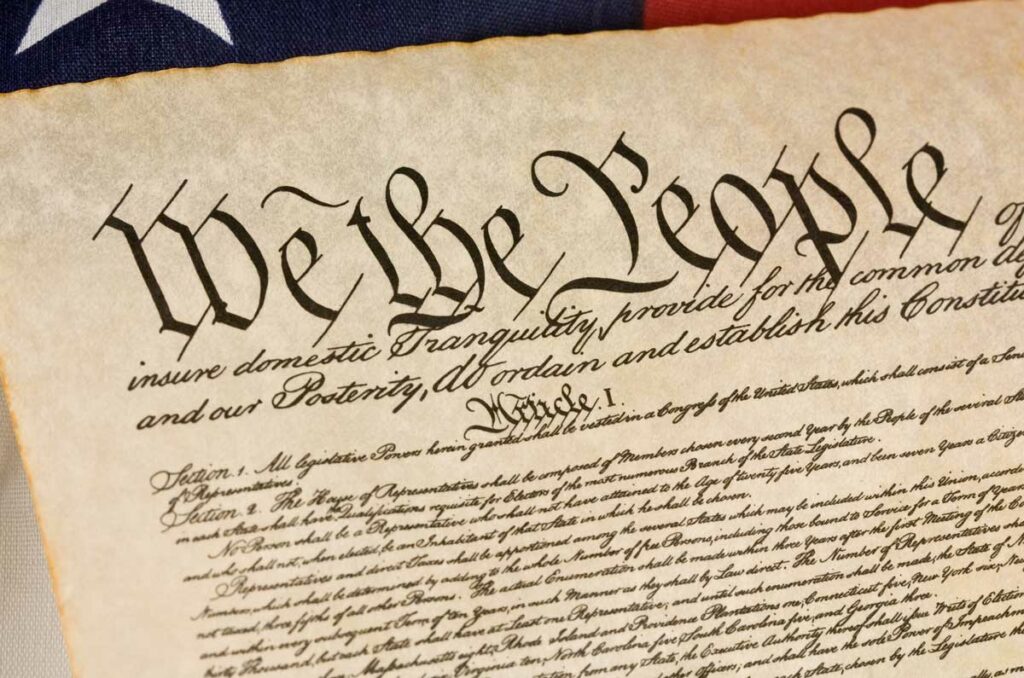 We the People of
insure domestic Tranquility, provide for the common de
and our Posterity, do ordain and establish this Constitu
Article. I.
Section. 1. All legislative Powers herein granted shall be vested in a Congress of the United States, which shall consist of a Sen
of Representatives.
Section. 2. The House of Representatives shall be composed of Members chosen every second Year by the People of the several Sta
in each State shall have the Qualifications requisite for Electors of the most numerous Branch of the State Legislature.
No Person shall be a Representative who shall not have attained to the Age of twenty five Years, and been seven Years a Citizen
and who shall not, when elected, be an Inhabitant of that State in which he shall be chosen.
Representatives and direct Taxes shall be apportioned among the several States which may be included within this Union, accord
Numbers, which shall be determined by adding to the whole Number of free Persons, including those bound to Service for a Term of Years
not taxed, three fifths of all other Persons. The actual Enumeration shall be made within three Years after the first Meeting of the Co
and within every subsequent Term of ten Years, in such Manner as they shall by Law direct. The Number of Representatives sha
thirty Thousand, but each State shall have at Least one Representative; and until such enumeration shall be made, the State of N
Massachusetts eight, Rhode Island and Providence Plantations one, Connecticut five, New York six, New
Virginia ten, North Carolina five, South Carolina five, and Georgia three.
from any State, the Executive Authority thereof shall issue Writs of Election
other Officers; and shall have the sole Power of Impeachm
each State, chosen by the Legislature th